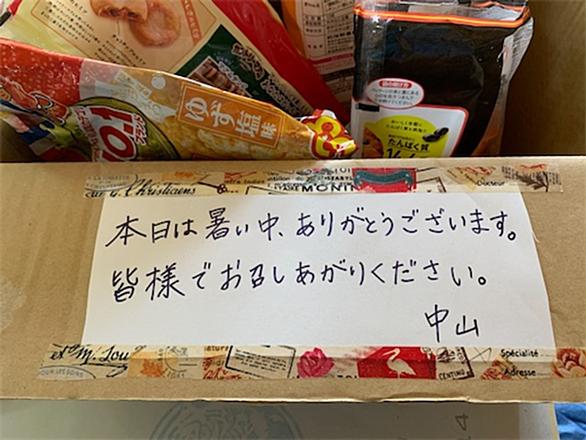 ゆず塩味
たんぱく質
Christiaens
MONI
Docteur
本日は暑い中、ありがとうございます。
皆様でお召しあがりください。
中山
et M. Lou
CENTIMO
Spécialité
Adresse
4